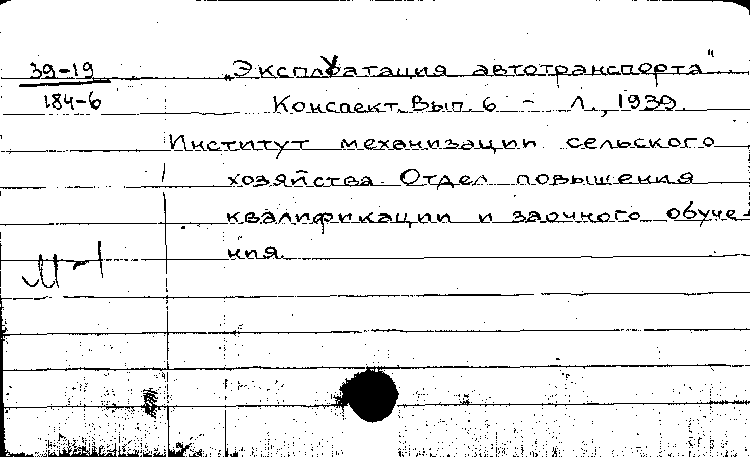 39-19
184-6
„Эксплуатация автотранспорта"
Конспект. Вып. 6 - Л., 1939.
Институт механизации сельского
хозяйства. Отдел повышения
квалификации и заочного обуче-
ния.
М-1